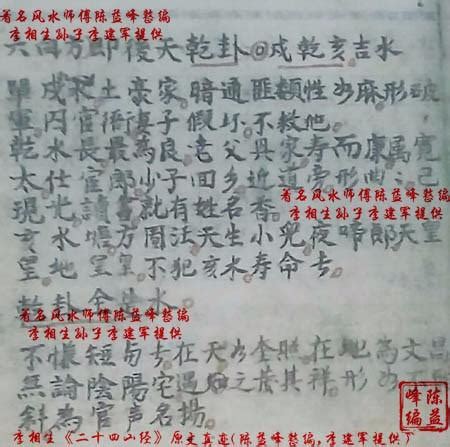 著名风水师傅陈益峰整编
李相生孙子李建军提供
六西方即後天乾卦 戌乾亥吉水
單戌 土豪家暗通匪類性 麻形破
軍円官 妻子假 不救他
乾水長最為良老父具家寿而康萬寬
太仕官郎少子回乡近道 形曲 己
著名风水师傅陈益峰整编
李相生孙子李建军提供
現 讀書就有姓名香
亥水 方周法天生小兒夜啼郎天皇
皇地皇皇不犯亥水寿命 
乾卦全 水
著名风水师傅陈益峰整编
李相生孙子李建军提供
不懷短句 在天 全照在地為文昌
無論陰陽宅遇 之 其祥形 不
斜為官声名揚
陈益峰编
李相生《二十四山经》原文真迹(陈益峰整编,李建军提供)